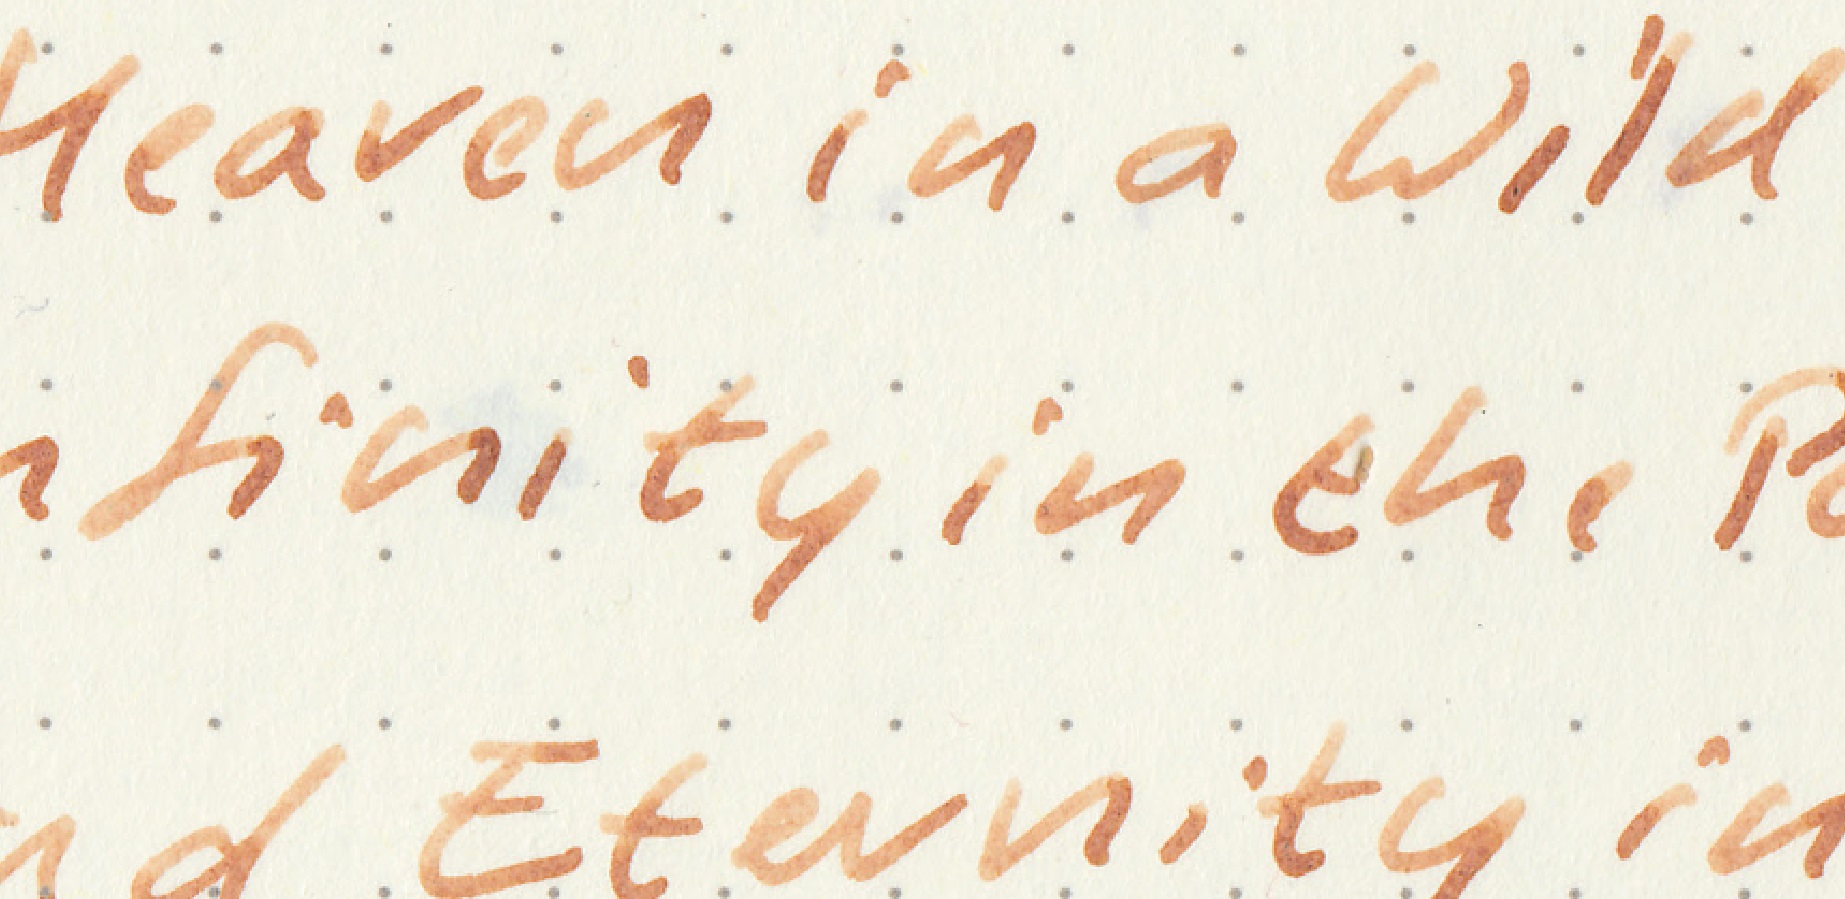 Heaven in a Wild
nfinity in the Pa
nd Eternity in